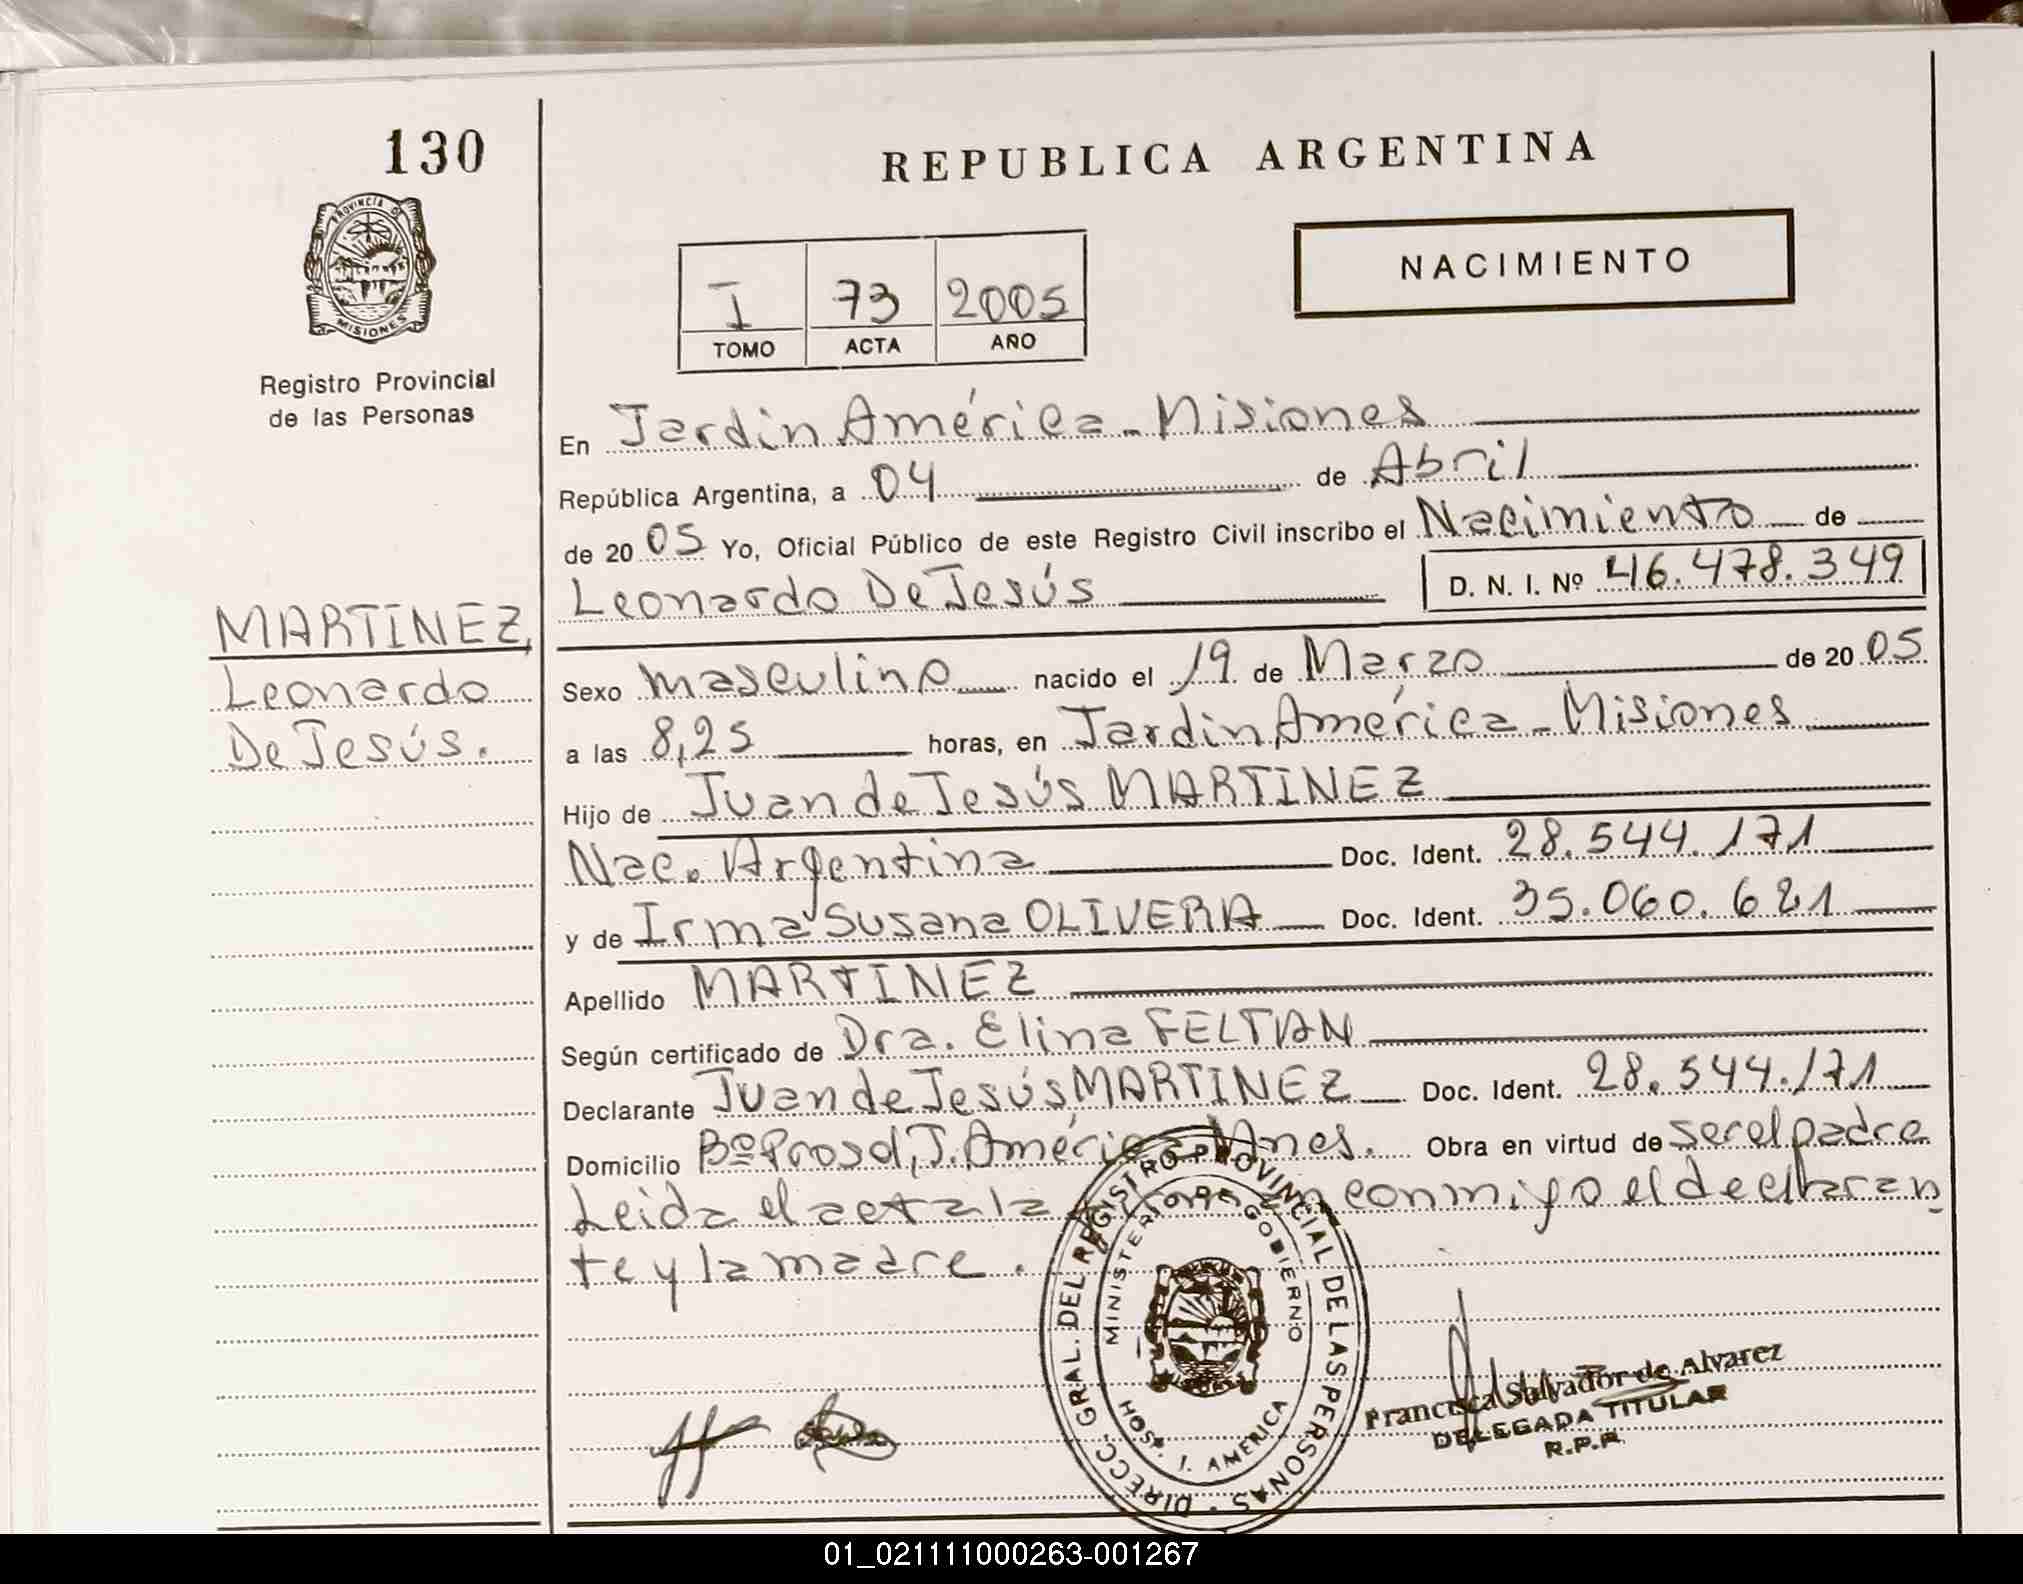 130
REPUBLICA ARGENTINA
PROVINCIA DE
MISIONES
Registro Provincial
de las Personas
NACIMIENTO
I 73 2005
TOMO ACTA AÑO
En Jardin América - Misiones
República Argentina, a 04 de Abril
de 20 05 Yo, Oficial Público de este Registro Civil inscribo el Nacimiento de
Leonardo De Jesús D. N. I. Nº 46.478.349
MARTINEZ,
Leonardo
De Jesús.
Sexo masculino nacido el 19 de Marzo de 20 05
a las 8,25 horas, en Jardin América - Misiones
Hijo de Juan de Jesús MARTINEZ
Nac. Argentina Doc. Ident. 28.544.171
y de Irma Susana OLIVERA Doc. Ident. 35.060.681
Apellido MARTINEZ
Según certificado de Dra. Elina FELTAN
Declarante Juan de Jesús MARTINEZ Doc. Ident. 28.544.171
Domicilio Bº Prosol, J. América Mnes. Obra en virtud de ser el padre
Leida el acta la firman conmigo el declaran
te y la madre.
DIRECC. GRAL. DEL REGISTRO PROVINCIAL DE LAS PERSONAS
MINISTERIO DE GOBIERNO
HOSP. J. AMERICA
Francisca Salvador de Alvarez
DELEGADA TITULAR
R.P.P.
01_021111000263-001267